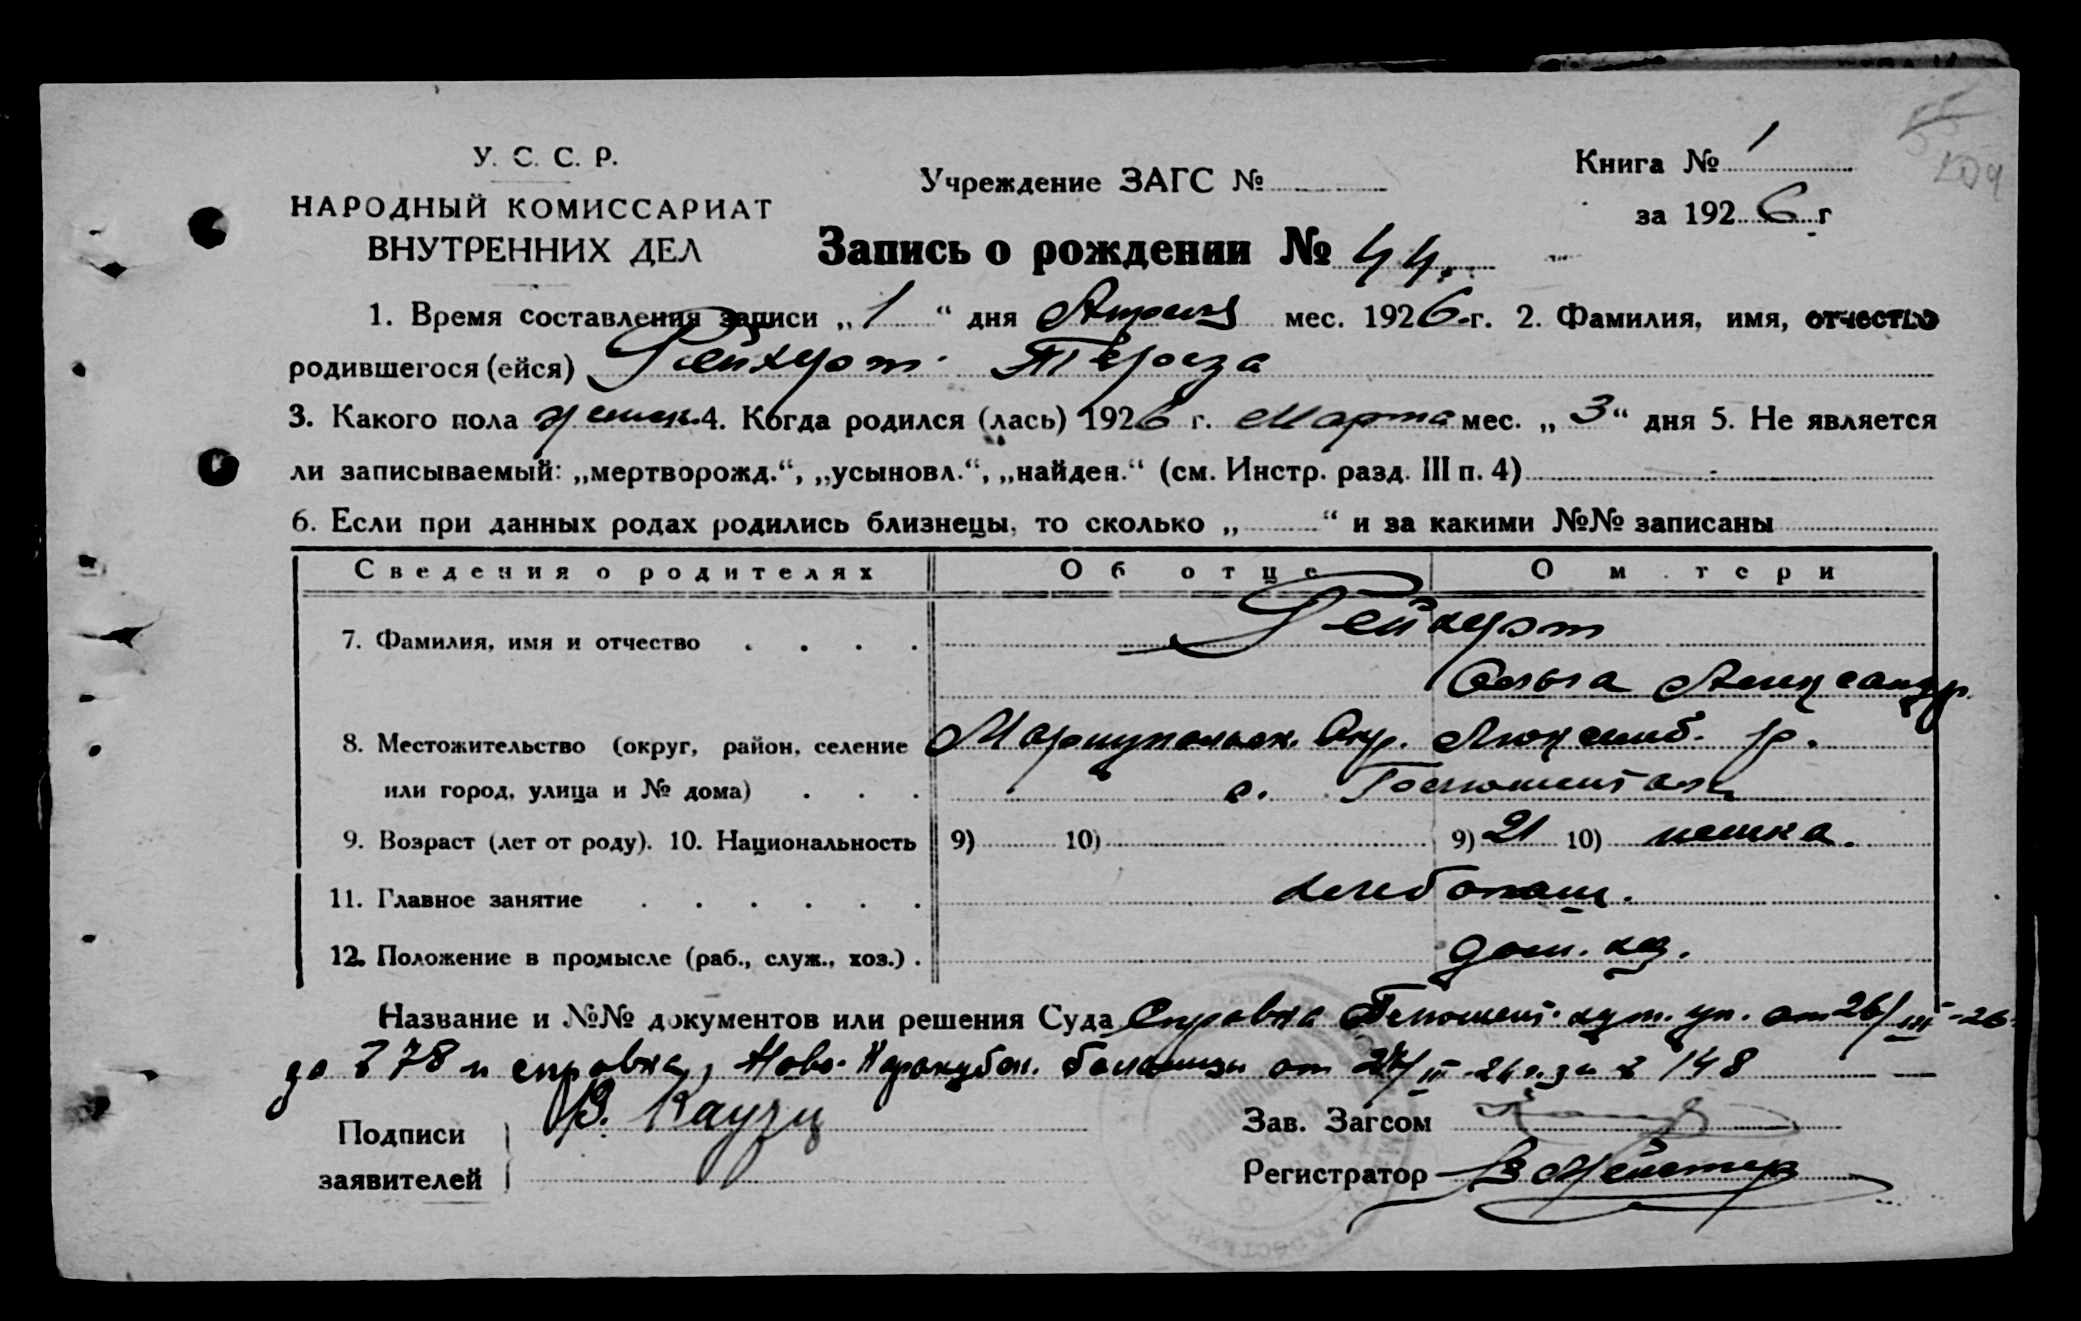 У. С. С. Р.
НАРОДНЫЙ КОМИССАРИАТ
ВНУТРЕННИХ ДЕЛ
Учреждение ЗАГС №
Книга № 1
за 1926 г
Запись о рождении № 44.
1. Время составления записи „1“ дня Апреля мес. 1926 г. 2. Фамилия, имя, отчество
родившегося (ейся) Рейхерт Тереза
3. Какого пола женск. 4. Когда родился (лась) 1926 г. Марта мес. „3“ дня 5. Не является
ли записываемый: „мертворожд.“, „усыновл.“, „найден.“ (см. Инстр. разд. III п. 4)
6. Если при данных родах родились близнецы, то сколько „ “ и за какими №№ записаны
Сведения о родителях Об отце О м тери
7. Фамилия, имя и отчество Рейхерт
Ольга Александр.
8. Местожительство (округ, район, селение Мариупольск. Окр. Люксемб. р.
или город, улица и № дома) с.
9. Возраст (лет от роду). 10. Национальность 9) 10) 9) 21 10) немка.
11. Главное занятие хлебопаш.
12. Положение в промысле (раб., служ., хоз.) дом. хоз.
Название и №№ документов или решения Суда Справка от 26/III-26
за № 78 и справка, Ново-Каракубск. больницы от 27/III-26 г. за № 148
Подписи
заявителей В. Каузц
Зав. Загсом
Регистратор В Мейстер